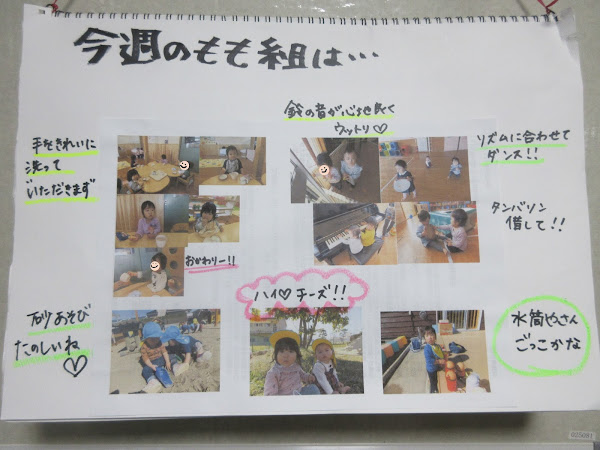 今週のもも組は…
鈴の音が心地良く
ウットリ♡
手をきれいに
洗って
いただきます
リズムに合わせて
ダンス!!
タンバリン
借して!!
おかわりー!!
ハイ♡チーズ!!
砂あそび
たのしいね
♡
水筒やさん
ごっこかな
025081